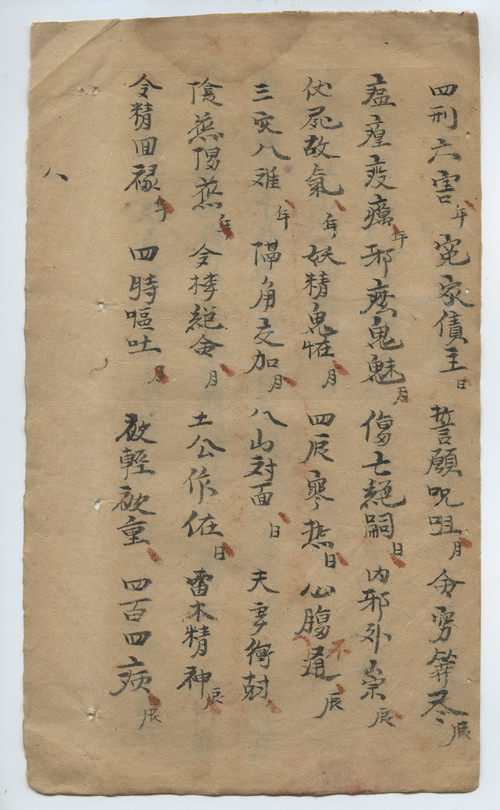 四刑六害年 冤家債主日 誓願呪咀月 命穷筭尽辰
瘟㾮疫癘年 邪庅鬼魅月 傷亡絕嗣日 內邪外祟辰
伏屍故氣年 妖精鬼怪月 四辰寒热日 心腸不通辰
三灾八难年 隔角交加月 八山对面日 夫妻衝尅
陰差陽差年 令孛絕命月 土公作在日 雷木精神辰
令精回祿年 四時嘔吐月 欲輕欲重 四百四病辰
八